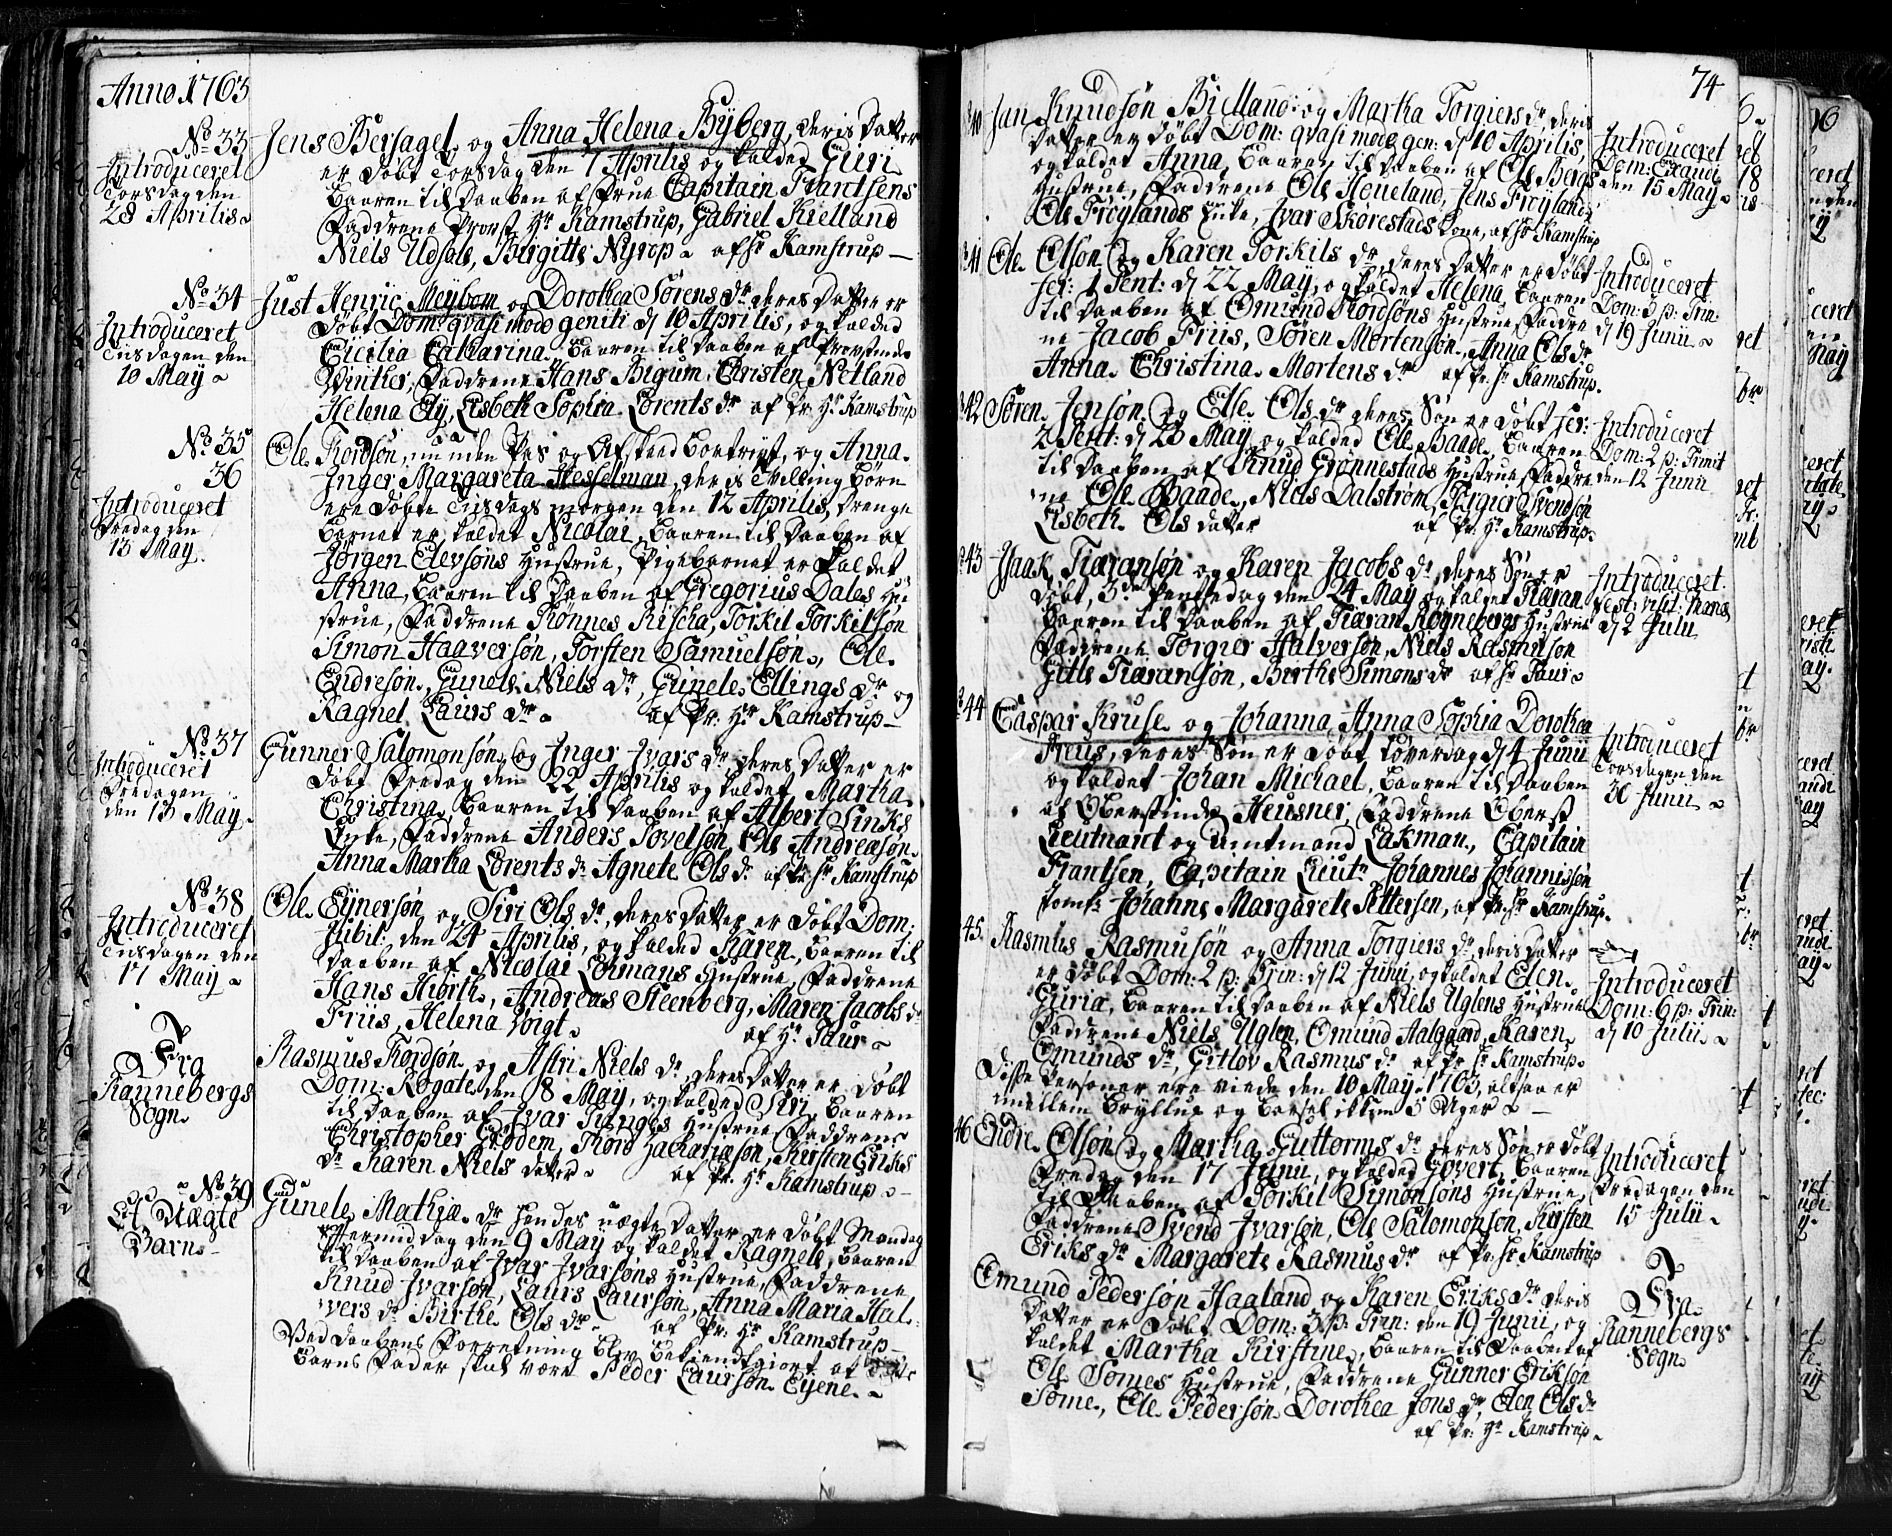 Anno 1763
No 33
Introduceret
Torsdag den
28 Aprilis
Jens Bersagel og Anna Helena Byberg, deris Datter
er døbt Torsdag den 7 Aprilis og kalded Guri
baaren til Daaben af Frue Capitain Frantsens
Faddrene Provst Hr Kamstrup, Gabriel Kielland
Niels Udsale, Birgitte Nyrop af Hr Kamstrup
No 34
Introduceret
Tiisdagen den
10 May
Just Henric Meybom og Dorothea Sørens dr deres Datter er
døbt Dom: qvasi modo geniti d 10 Aprilis, og kalded
Cicilia Catharina, baaren til Daaben af Provstinde
Winther, Faddrene Hans Bigum, Christen Netland
Helena Ely, Lisbeth Sophia Lorents dr af Pr: Hr Kamstrup
No 35
36
Introduceret
Fredag den
13 May
Ole Tordsøn, uden Pas og Afskeed bortrejst, og Anna
Inger Margareta Hesselman, deris Tvelling Børn
ere døbte Tiisdags morgen den 12 Aprilis, Drenge
Barnet er kaldet Nicolai, baaren til Daaben af
Jørgen Elevsøns Hustrue, Pigebarnet er kaldet
Anna, baaren til Daaben af Gregorius Dales Hu
strue, Faddrene Rønnes Rischa, Torkil Torkilsøn
Simon Haaversøn, Torsten Samuelsøn, Ole
Endresøn, Gunele Niels dr, Gunele Ellings dr og
Ragnel Laurs dr af Pr: Hr Kamstrup
No 37
Introduceret
Fredagen
den 13 May
Gunner Salomonsøn og Inger Ivars dr deres Datter er
døbt Fredag den 22 Aprilis og kaldet Martha
Christina, baaren til Daaben af Albert Sinks
Enke, Faddrene Anders Tovelsøn, Ole Andreasøn
Anna Martha Lorents dr Agnete Ols dr af Pr Hr Kamstrup
No 38
Introduceret
Tiisdagen den
17 May
Ole Ejnersøn og Siri Ols dr, deres Datter er døbt Dom:
Jubil: den 24 Aprilis, og kalded Karen, baaren til
Daaben af Nicolai Lohmans Hustrue, Faddrene
Hans Hiorth, Andreas Steenberg, Maren Jacobs dr
Friis, Helena Voigt af Hr Faur
Fra
Rannebergs
Sogn
Rasmus Tordsøn og Astri Niels dr, deres Datter er døbt
Dom: Rogate den 8 May, og kalded Siri, baaren
til Daaben af Ivar Tiinges Hustrue, Faddrene
Christopher Grødem, Thord Zachariasøn, Kirsten Eriks
dr Karen Niels datter af Pr. Hr Kamstrup
No 39
Et Uægte
Barn
Gunele Mathiæ dr hendes uægte Datter er døbt Mandag
Aftermiddag den 9 May og kaldet Ragnele, baaren
til Daaben af Ivar Ivarsøns Hustrue, Faddrene
Knud Ivarsøn, Laurs Laursøn, Anna Maria Hal
vers dr Birthe Ols dr af Pr: Hr Kamstrup
Ved Daabens Forretning blev bekiendtgiort at dette
Barns Fader skal være Peder Laursøn Ejene
74
40
Jan Knudsøn Bielland og Martha Torgiers dr, deris
Datter er døbt Dom: qvasi modo gen: d 10 Aprilis,
og kaldet Anna, baaren til Daaben af Ole Bergs
Hustrue, Faddrene Ole Heneland, Jens Frøyland,
Ole Frøylands Enke, Ivar Skorestads Kone, af Hr Kamstrup
Introduceret
Dom: Exaudi
den 15 May
41
Ole Olsøn og Karen Torkils dr, deres Datter er døbt
fer: 1 Pent: d 22 May, og kaldet Helena, baaren
til Daaben af Omund Tordsøns Hustrue, Faddre
ne Jacob Friis, Søren Mortensøn, Anna Ols dr
Anna Christina Mortens dr af Pr. Hr Kamstrup
Introduceret
Dom: 3 p: Trin:
d 19 Junii
42
Søren Jensøn og Else Ols dr deres Søn er døbt fer:
2 Pent: d 23 May og kaldet Ole Baade, baaren
til Daaben af Knud Grønnestads Hustrue, Faddre
ne Ole Baade, Niels Dalstrøm, Torgier Svendsøn
Lisbeth Ols datter af Pr. Hr Kamstrup
Introduceret
Dom: 2 p: Trinit
den 12 Junii
43
Isaak Tiæransøn og Karen Jacobs dr, deres Søn er
døbt, 3die Pentzedag den 24 May og kaldet Tiæran
baaren til Daaben af Tiæran Rognebergs Hustrue
Faddrene Torgier Halversøn, Niels Rasmusøn
Gitle Tiæransøn, Birthe Simons dr af Hr Faur
Introduceret
Fest: visit: Mariæ
d 2 Julii
44
Caspar Kruse og Johanna Anna Sophia Dorothea
Preus, deres Søn er døbt Løverdag d 4 Junii
og kaldet Johan Michael, baaren til Daaben
af Oberstinde Heusner, Faddrene Oberst
Lieutnant og Amtmand Lakman, Capitain
Frantsen, Capitain Lieutn Johannes Johannissøn
Jomfr Johanne Margarete Pettersen, af Pr. Hr Kamstrup
Introduceret
Torsdagen den
30 Junii
45
Rasmus Rasmusøn og Anna Torgiers dr, deris Datter
er døbt Dom: 2 p: Trin: d 12 Junii, og kaldet Elen
Guria, baaren til Daaben af Niels Uglens Hustrue
Faddrene Niels Uglen, Omund Aalgaard, Karen
Omunds dr, Gitlov Rasmus dr af Pr Hr Kamstrup
Disse Personer ere viede den 10 May 1763, altsaa er
imellem Bryllup og Barsel ikkun 5 Uger
Introduceret
Dom: 6 p: Trin:
d 10 Julii
46
Endre Olsøn og Martha Guttorms dr deres Søn er døbt
Fredag den 17 Junii, og kalded Govert, baaren
til Daaben af Torkil Simonsøns Hustrue,
Faddrene Svend Ivarsøn, Ole Salomonsøn, Kirsten
Eriks dr Margarete Rasmus dr af Pr. Hr Kamstrup
Introduceret
Fredagen den
15 Julii
Omund Pedersøn Haaland og Karen Eriks dr deris
Datter er døbt Dom: 3 p: Trin: den 19 Junii, og
kaldet Martha Kirstine, baaren til Daaben af
Ole Sømes Hustrue, Faddrene Gunner Eriksøn
Sømes, Ole Pedersøn, Dorothea Jons dr, Elen Ols dr
af Pr: Hr Kamstrup
Fra
Rannebergs
Sogn